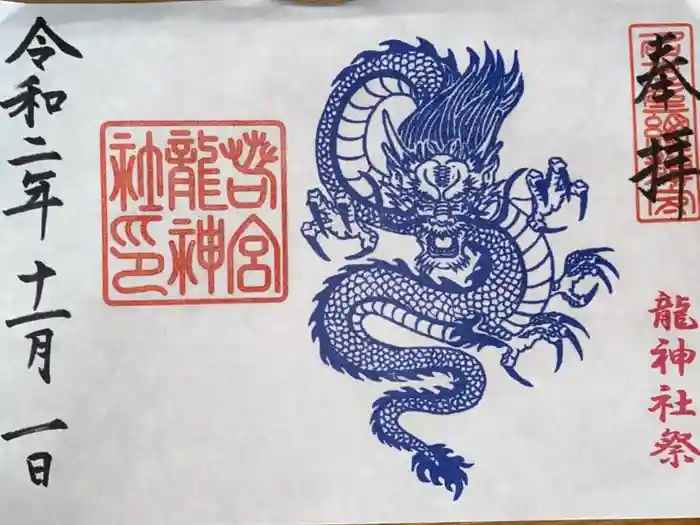 奉拝
龍神社祭
龍神
社印
令和二年十一月一日